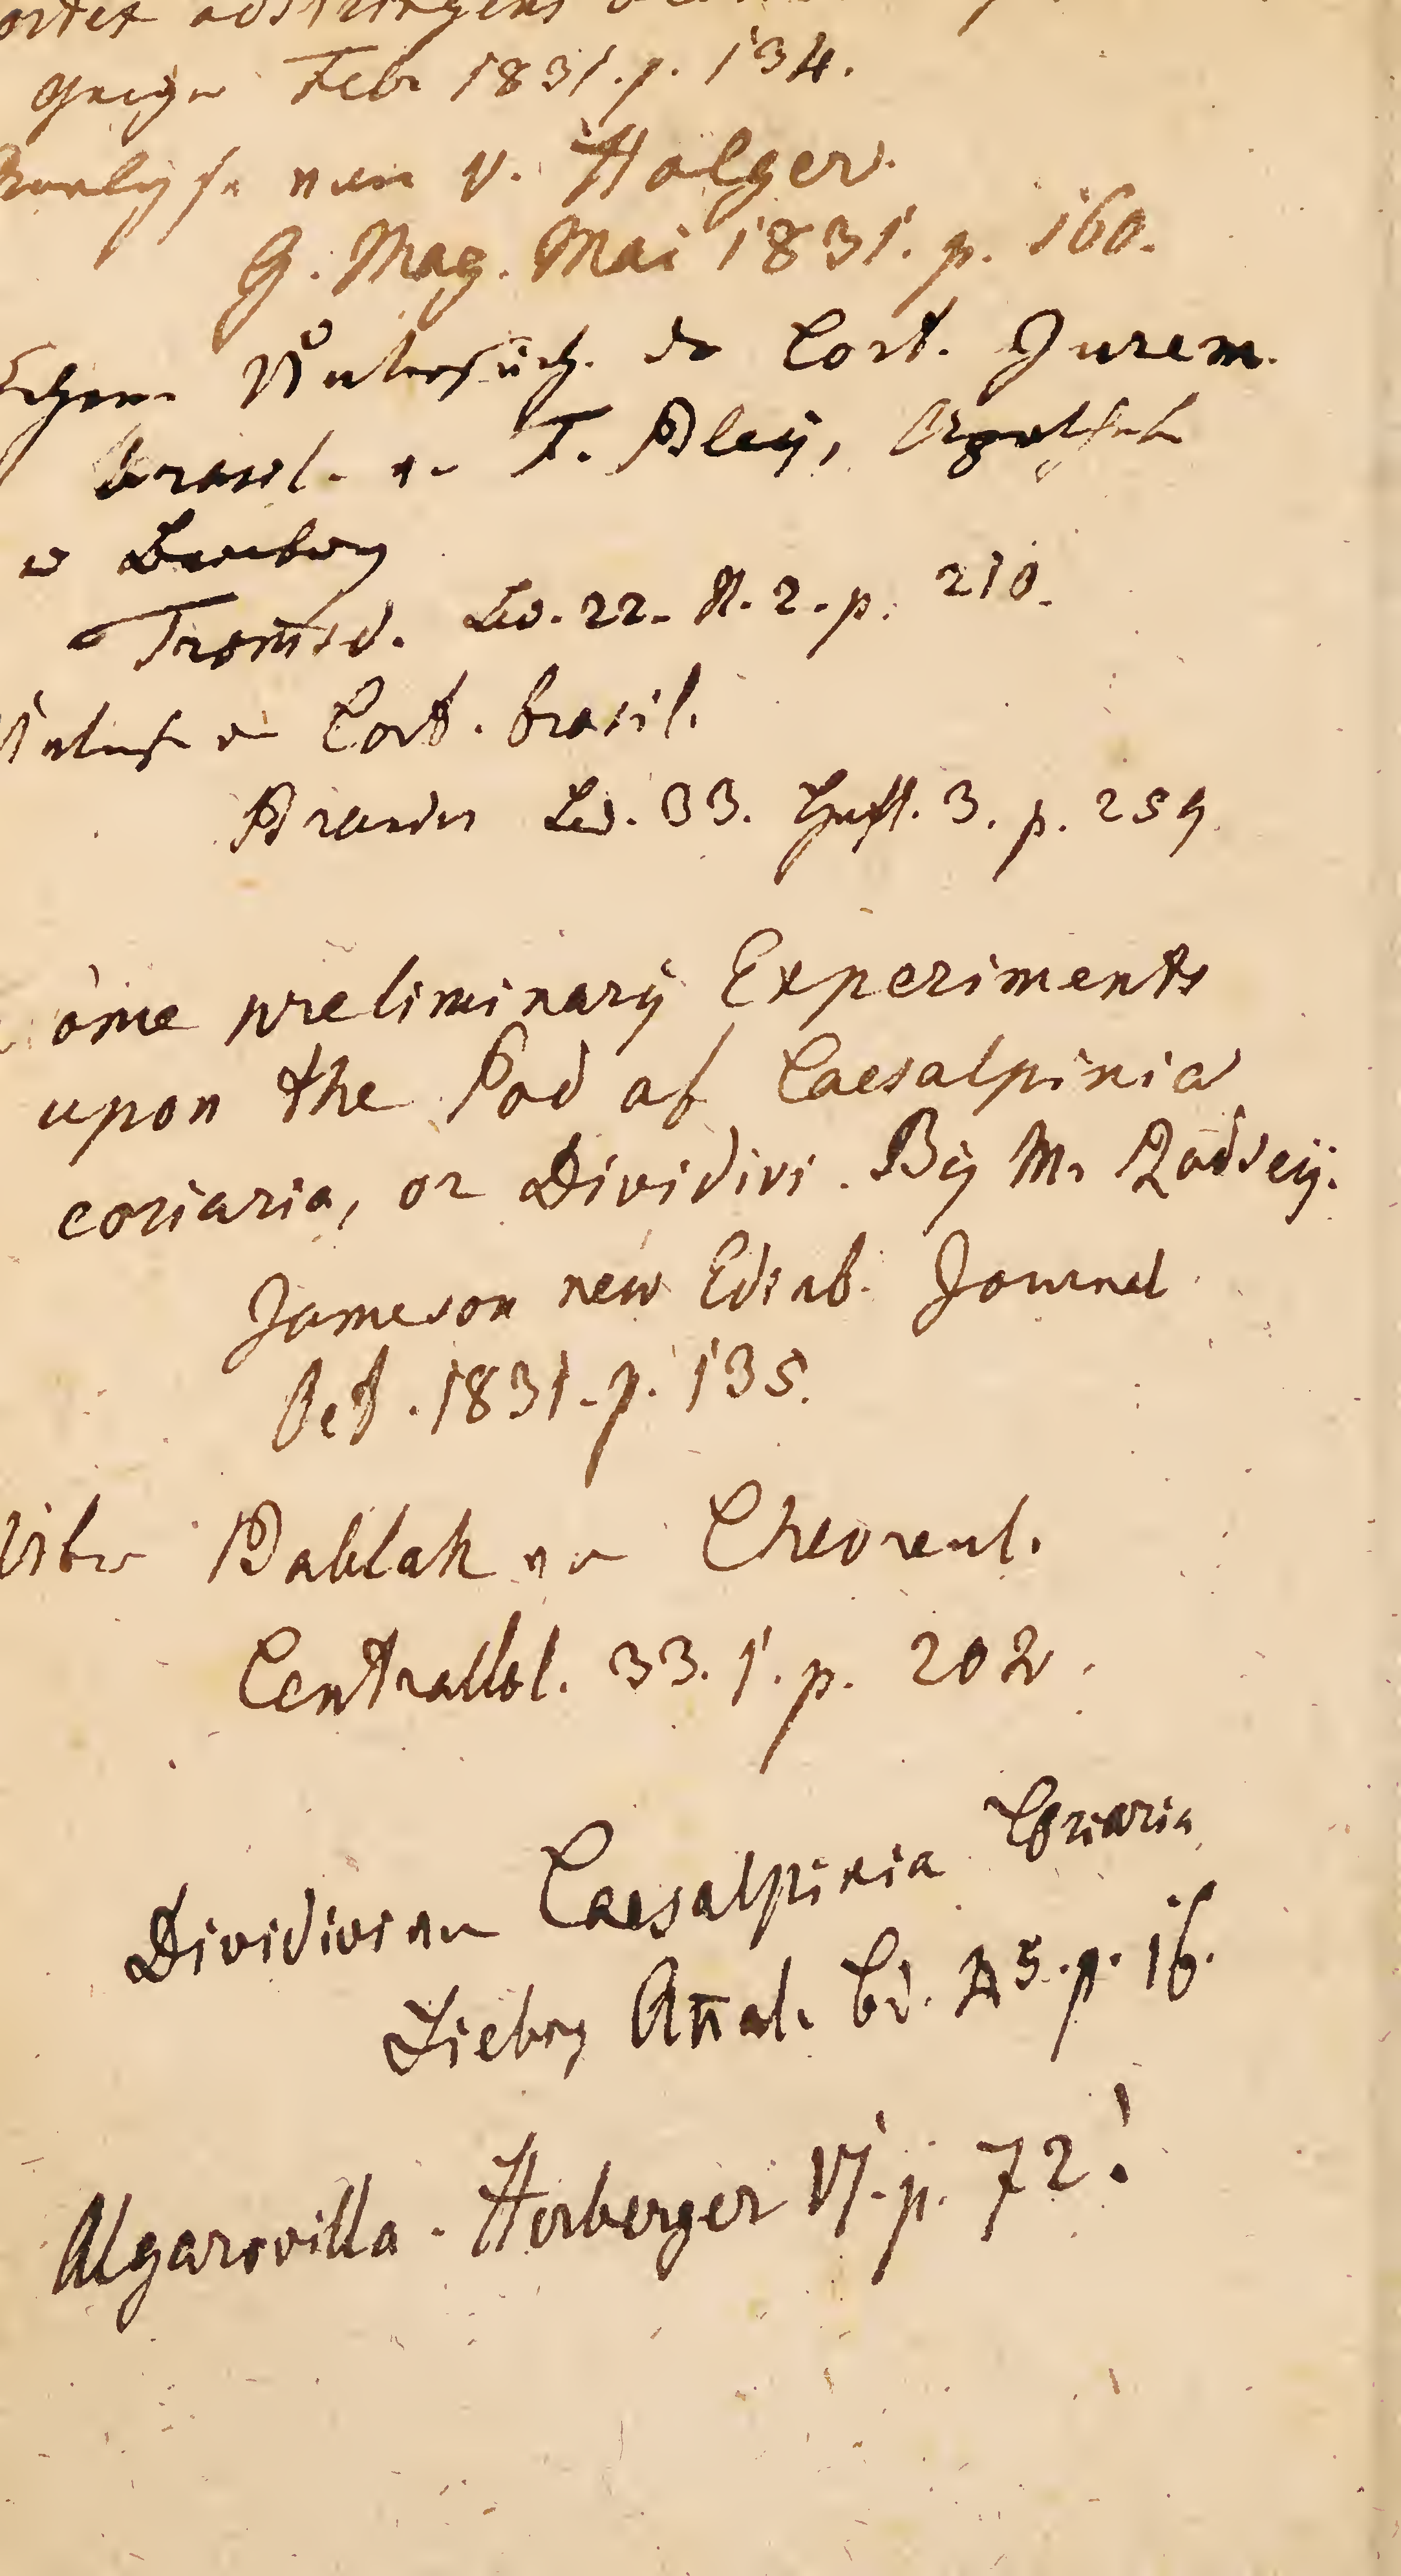 adstringens
Geiger Febr 1831. p. 134.
Analyse von v. Holger.
G. Mag. Mai 1831. p. 160.
Chem. Untersuch. der Cort. Jurem.
brasil. von F. Bley, Apotheker
in Bernburg
Tromsd. Bd. 22. St. 2. p. 210.
Cort. brasil.
Brandes Bd. 33. Heft. 3. p. 259.
ome preliminary Experiments
upon the Pod of Caesalpinia
coriaria, or Dividivi. By Mr Rodsey.
Jameson new Edinb. Journal
Oct. 1831. p. 135.
Über Bablah von Chevreul.
Centralbl. 33. 1. p. 202.
Dividivi von Caesalpinia Coriaria
Liebig Añal. Bd. p. 16.
Algarovilla - Herberger VI. p. 72!